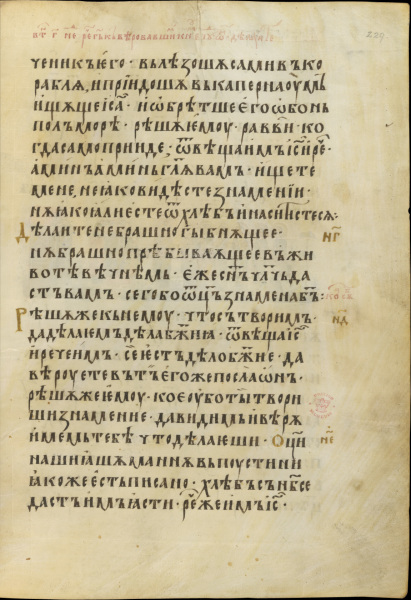 ченикъ его · вълѣзошѫ сами въ ко
рабля, и прїидошѫ въ капернаоумъ
ищѫще і҃са · и ѡбрѣтше его ѡб онъ
полъ морѣ · рѣшѫ емоу · равви · ко
гда сѣмо прїиде; ѿвѣща имъ і҃с и рече
аминъ аминь гл҃ѫ вамъ · ищете
мене, не ꙗко видѣсте знаменїи ·
нѫ ꙗко ꙗли есте ѿ хлѣбъ и насытистесѧ ·
дѣлаите не брашно гыбнѫщее ·
нѫ брашно прѣбываѫщее въ жи
вотѣ вѣчнѣмь · еже сн҃ъ чл҃чь да
стъ вамъ · сего бо ѡц҃ъ знамена б҃ъ ·
Рѣшѫ же къ немоу · что сътворимъ ·
да дѣлаемъ дѣла бж҃їа · ѿвѣща і҃с
и рече имъ · се естъ дѣло бж҃ие · да
вѣроуете въ тъ егоже посла ѡнъ ·
рѣшѫ же емоу · кое оубо ты твори
ши знамение · да видимъ и вѣрѫ
имемь тебѣ что дѣлаеши · Оц҃и
наши ꙗшѫ маннѫ въ поустыни
ꙗкоже естъ писано · хлѣбъ съ нб҃се
дастъ имъ ꙗсти · рече же имъ і҃с ·
нг
нд
не